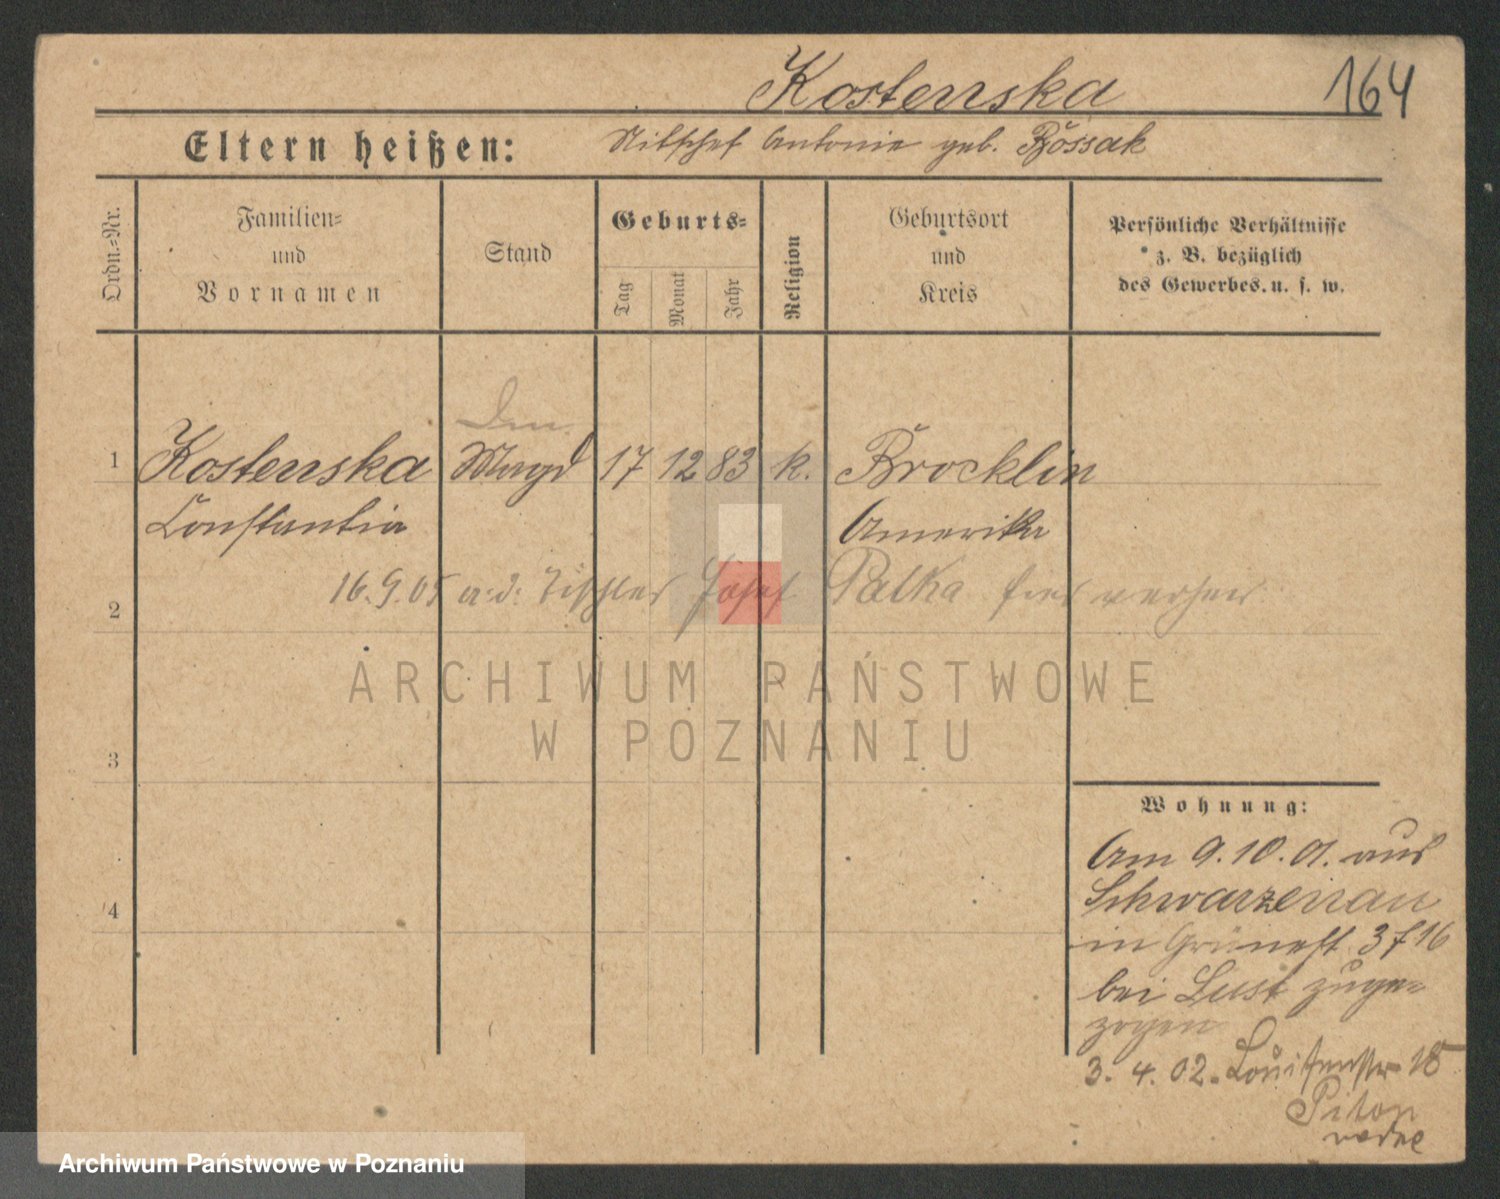 Kostenska 164
Eltern heißen: Antonie geb.
Ordn.-Nr.
Familien-
und
Vornamen
Stand
Geburts-
Tag
Monat
Jahr
Religion
Geburtsort
und
Kreis
Persönliche Verhältnisse
z. B. bezüglich
des Gewerbes u. s. w.
1 Kostenska Magd 17 12 83 k. Brocklin
Constantia Amerika
2 16.9.05 a. d. Tischler Josef Palka hier verheir
3
4
ARCHIWUM PAŃSTWOWE
W POZNANIU
Wohnung:
Am 9.10.01. aus
Schwarzenau
in 16
bei Lust zuge=
zogen
3. 4. 02. Louisenstr 18
Archiwum Państwowe w Poznaniu